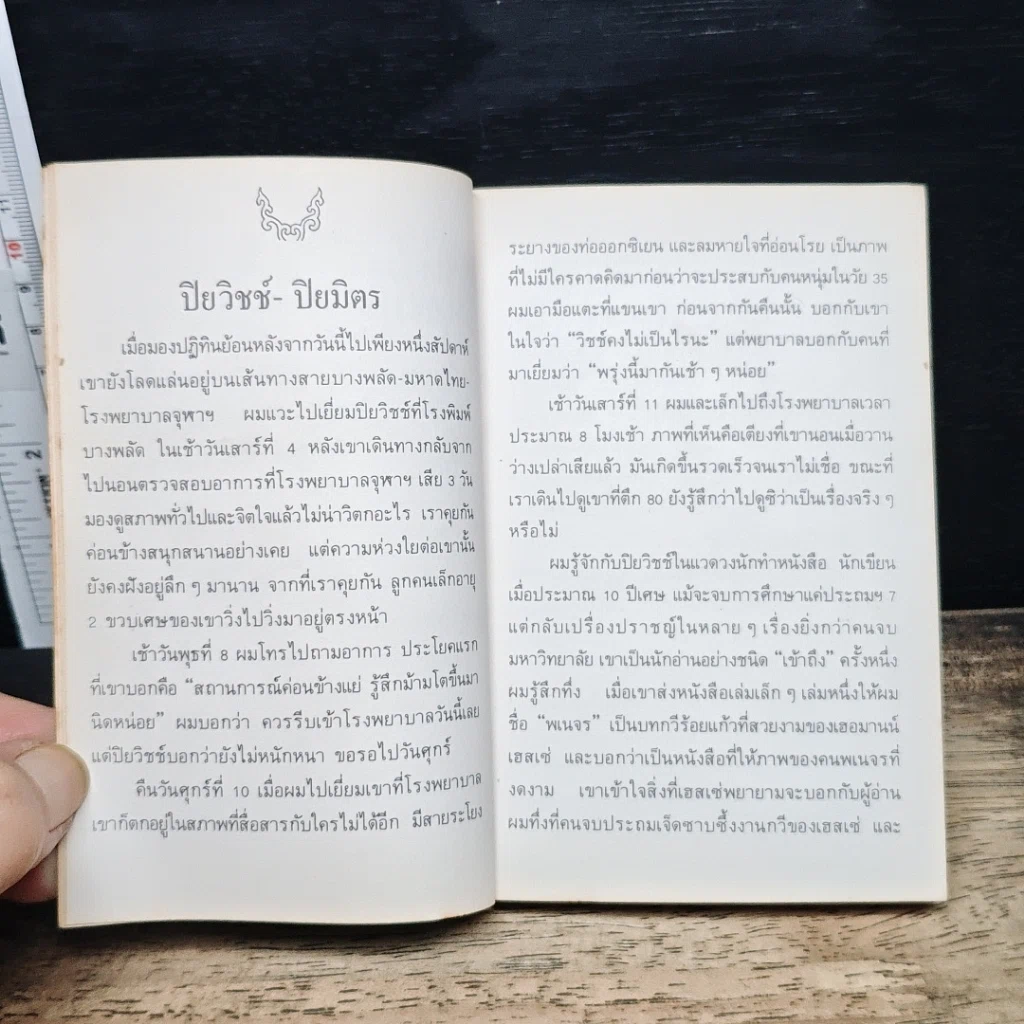 ปิยวิชช์- ปิยมิตร
เมื่อมองปฏิทินย้อนหลังจากวันนี้ไปเพียงหนึ่งสัปดาห์
เขายังโลดแล่นอยู่บนเส้นทางสายบางพลัด-มหาดไทย-
โรงพยาบาลจุหาฯ ผมแวะไปเยี่ยมปิยวิชช์ที่โรงพิมพ์
บางพลัด ในเช้าวันเสาร์ที่ 4 หลังเขาเดินทางกลับจาก
ไปนอนตรวจสอบอาการที่โรงพยาบาลจุฬาฯ เสีย 3 วัน
มองดูสภาพทั่วไปและจิตใจแล้วไม่น่าวิตกอะไร เราคุยกัน
ค่อนข้างสนุกสนานอย่างเคย แต่ความห่วงใยต่อเขานั้น
ยังคงฝังอยู่ลึก ๆ มานาน จากที่เราคุยกัน ลูกคนเล็กอายุ
2 ขวบเศษของเขาวิ่งไปวิ่งมาอยู่ตรงหน้า
เช้าวันพุธที่ 8 ผมโทรไปถามอาการ ประโยคแรก
ที่เขาบอกคือ “สถานการณ์ค่อนข้างแย่ รู้สึกม้ามโตขึ้นมา
นิดหน่อย” ผมบอกว่า ควรรีบเข้าโรงพยาบาลวันนี้เลย
แต่ปิยวิชช์บอกว่ายังไม่หนักหนา ขอรอไปวันศุกร์
คืนวันศุกร์ที่ 10 เมื่อผมไปเยี่ยมเขาที่โรงพยาบาล
เขาก็ตกอยู่ในสภาพที่สื่อสารกับใครไม่ได้อีก มีสายระโยง
ระยางของท่อออกซิเยน และลมหายใจที่อ่อนโรย เป็นภาพ
ที่ไม่มีใครคาดคิดมาก่อนว่าจะประสบกับคนหนุ่มในวัย 35
ผมเอามือแตะที่แขนเขา ก่อนจากกันคืนนั้น บอกกับเขา
ในใจว่า “วิชช์คงไม่เป็นไรนะ” แต่พยาบาลบอกกับคนที่
มาเยี่ยมว่า “พรุ่งนี้มากันเช้า ๆ หน่อย”
เช้าวันเสาร์ที่ 11 ผมและเล็กไปถึงโรงพยาบาลเวลา
ประมาณ 8 โมงเช้า ภาพที่เห็นคือเตียงที่เขานอนเมื่อวาน
ว่างเปล่าเสียแล้ว มันเกิดขึ้นรวดเร็วจนเราไม่เชื่อ ขณะที่
เราเดินไปดูเขาที่ตึก 80 ยังรู้สึกว่าไปดูซิว่าเป็นเรื่องจริง ๆ
หรือไม่
ผมรู้จักกับปิยวิชช์ในแวดวงนักทำหนังสือ นักเขียน
เมื่อประมาณ 10 ปีเศษ แม้จะจบการศึกษาแค่ประถมฯ 7
แต่กลับเปรื่องปราชญ์ในหลาย ๆ เรื่องยิ่งกว่าคนจบ
มหาวิทยาลัย เขาเป็นนักอ่านอย่างชนิด “เข้าถึง” ครั้งหนึ่ง
ผมรู้สึกทึ่ง เมื่อเขาส่งหนังสือเล่มเล็ก ๆ เล่มหนึ่งให้ผม
ชื่อ “พเนจร” เป็นบทกวีร้อยแก้วที่สวยงามของเฮอมานน์
เฮสเซ่ และบอกว่าเป็นหนังสือที่ให้ภาพของคนพเนจรที่
งดงาม เขาเข้าใจสิ่งที่เฮสเซ่พยายามจะบอกกับผู้อ่าน
ผมทึ่งที่คนจบประถมเจ็ดซาบซึ้งงานกวีของเฮสเซ่ และ